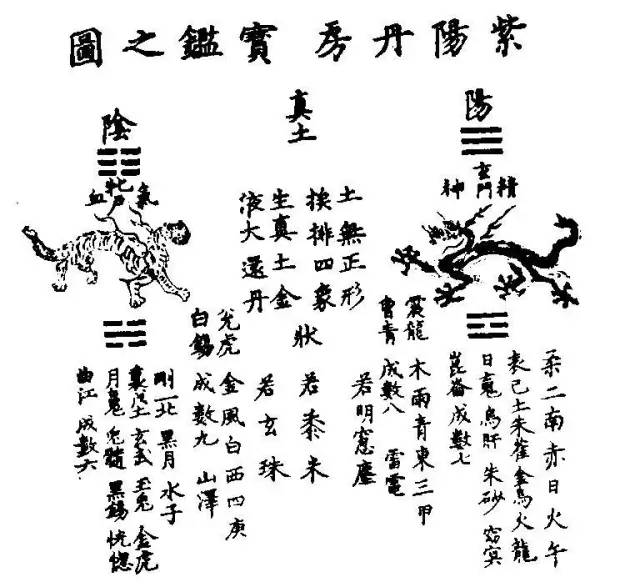 紫陽丹房寶鑑之圖
陽
精
玄門
神
柔二南赤日火午
表己土朱雀金烏火龍
日䰟烏肝朱砂窈冥
崑崙成數七
震龍
木雨青東三甲
曾青
成數八
雷電
真土
土無正形
挨排四象
生真土金
液大還丹
狀
若明窓塵
若黍米
若玄珠
陰
氣
血
兌虎
金風白西四庚
白錫
成數九
山澤
剛一北黑月水子
裏戊土玄武玉兔金虎
月䰟兔髓黑錫恍惚
曲江成數六